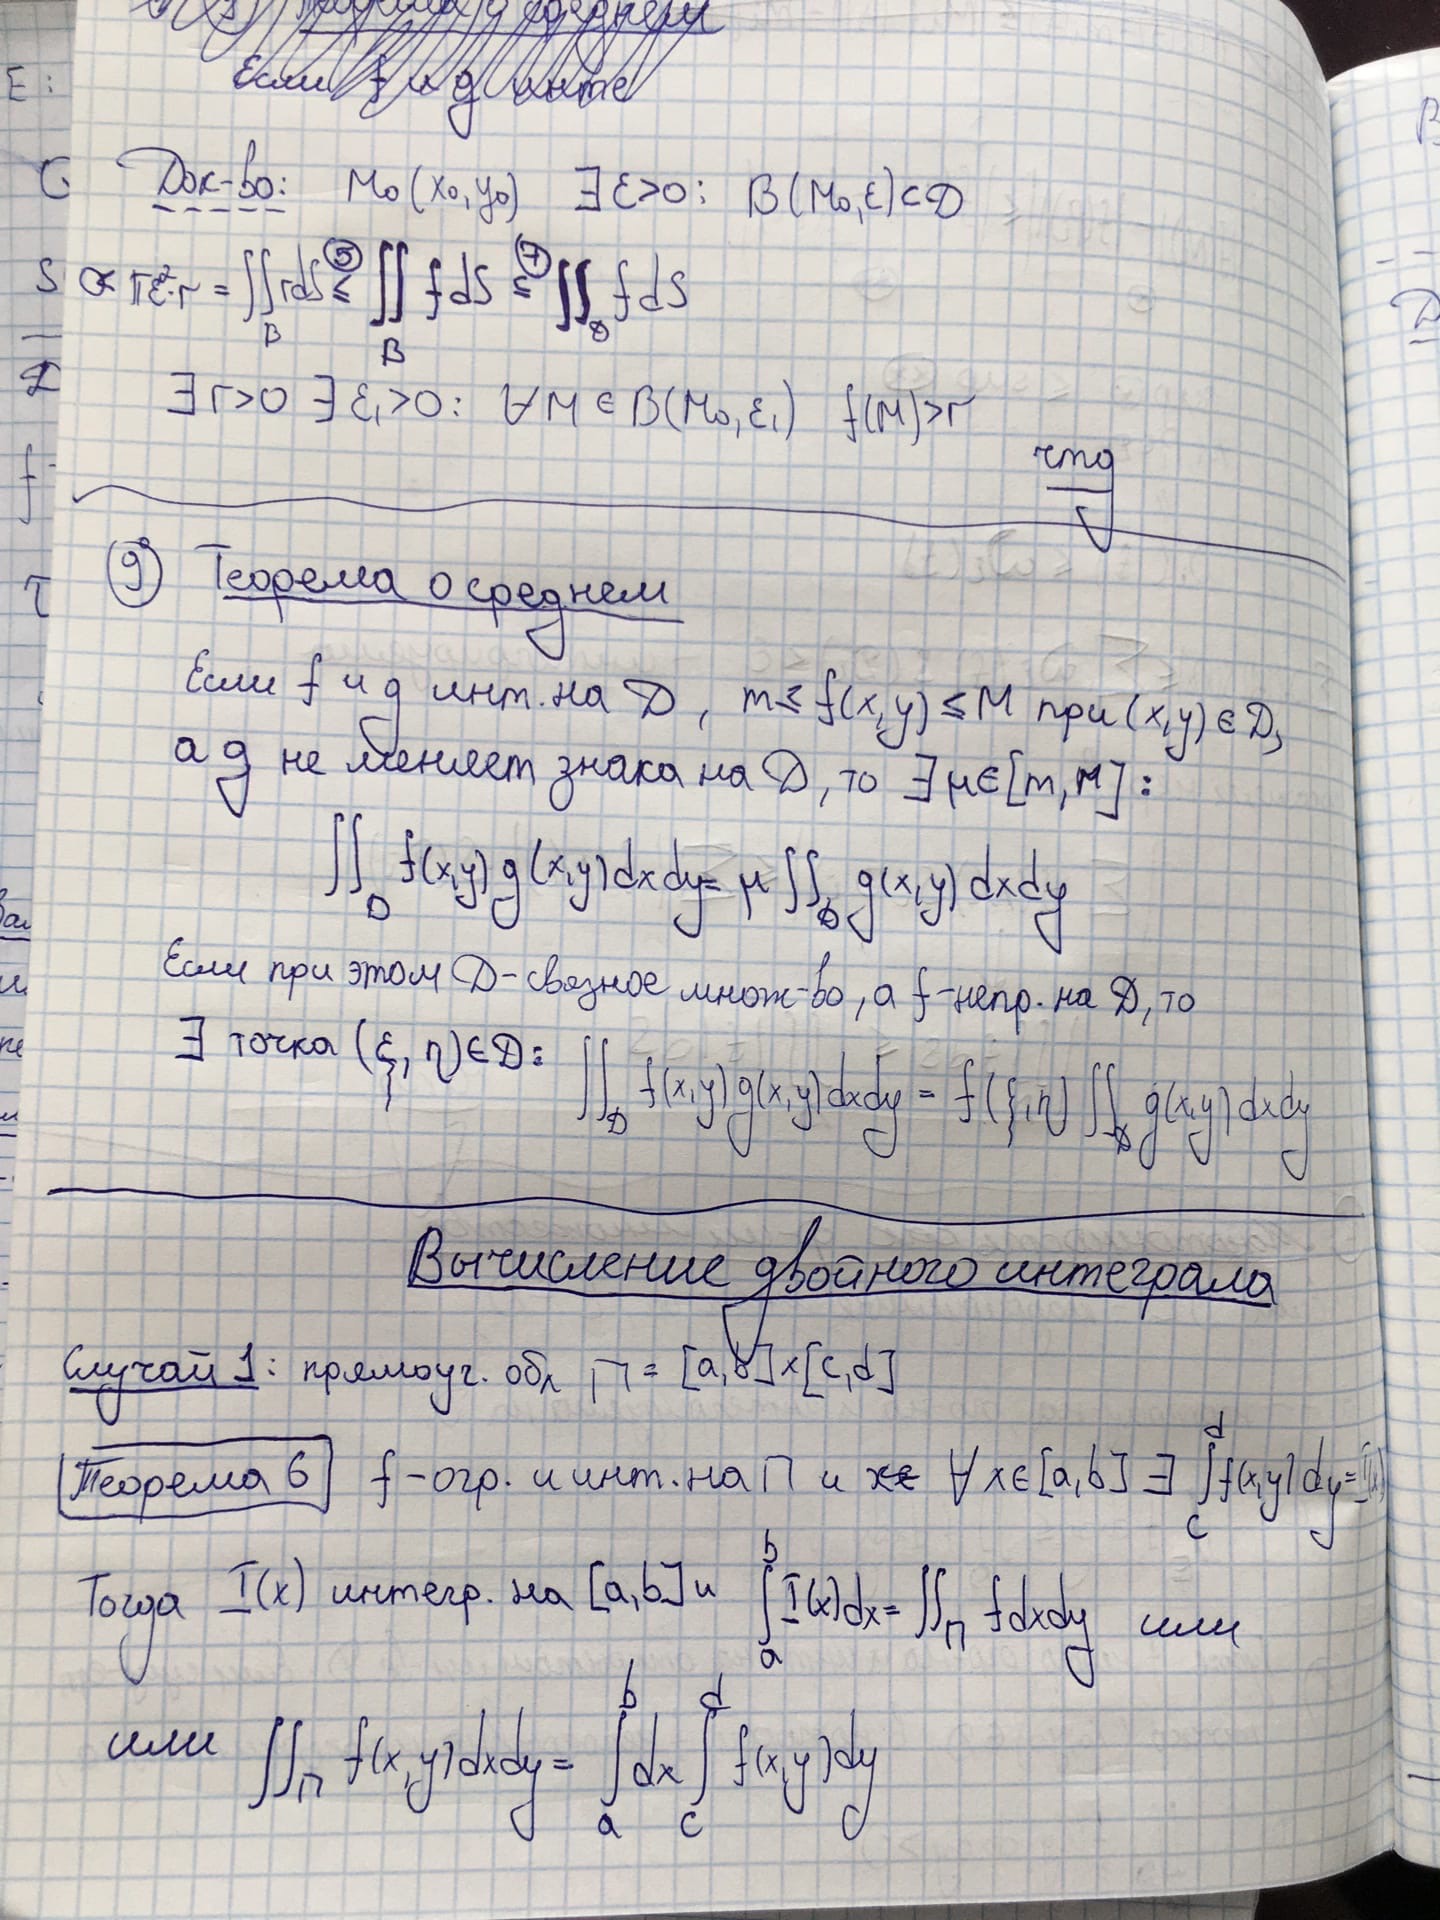 Теорема о среднем
Если f и g инте
Док-во: M₀(x₀,y₀) ∃ ε>0: B(M₀,ε)⊂D
πε²·r = ∬_B rdS ≤⑤ ∬_B f dS ≤⑦ ∬_D f dS
∃ r>0 ∃ ε₁>0: ∀M ∈ B(M₀,ε₁) f(M)>r
чтд
9° Теорема о среднем
Если f и g инт. на D, m≤f(x,y)≤M при (x,y)∈D,
а g не меняет знака на D, то ∃ μ∈[m,M]:
∬_D f(x,y)g(x,y)dxdy= μ∬_D g(x,y)dxdy
Если при этом D-связное множ-во, а f-непр. на D, то
∃ точка (ξ,η)∈D: ∬_D f(x,y)g(x,y)dxdy = f(ξ,η)∬_D g(x,y)dxdy
Вычисление двойного интеграла
Случай 1: прямоуг. обл П = [a,b]×[c,d]
Теорема 6 f-огр. и инт. на П и ∀x∈[a,b] ∃ ∫_c^d f(x,y)dy=I(x)
Тогда I(x) интегр. на [a,b] и ∫_a^b I(x)dx= ∬_П fdxdy или
или ∬_П f(x,y)dxdy= ∫_a^b dx ∫_c^d f(x,y)dy